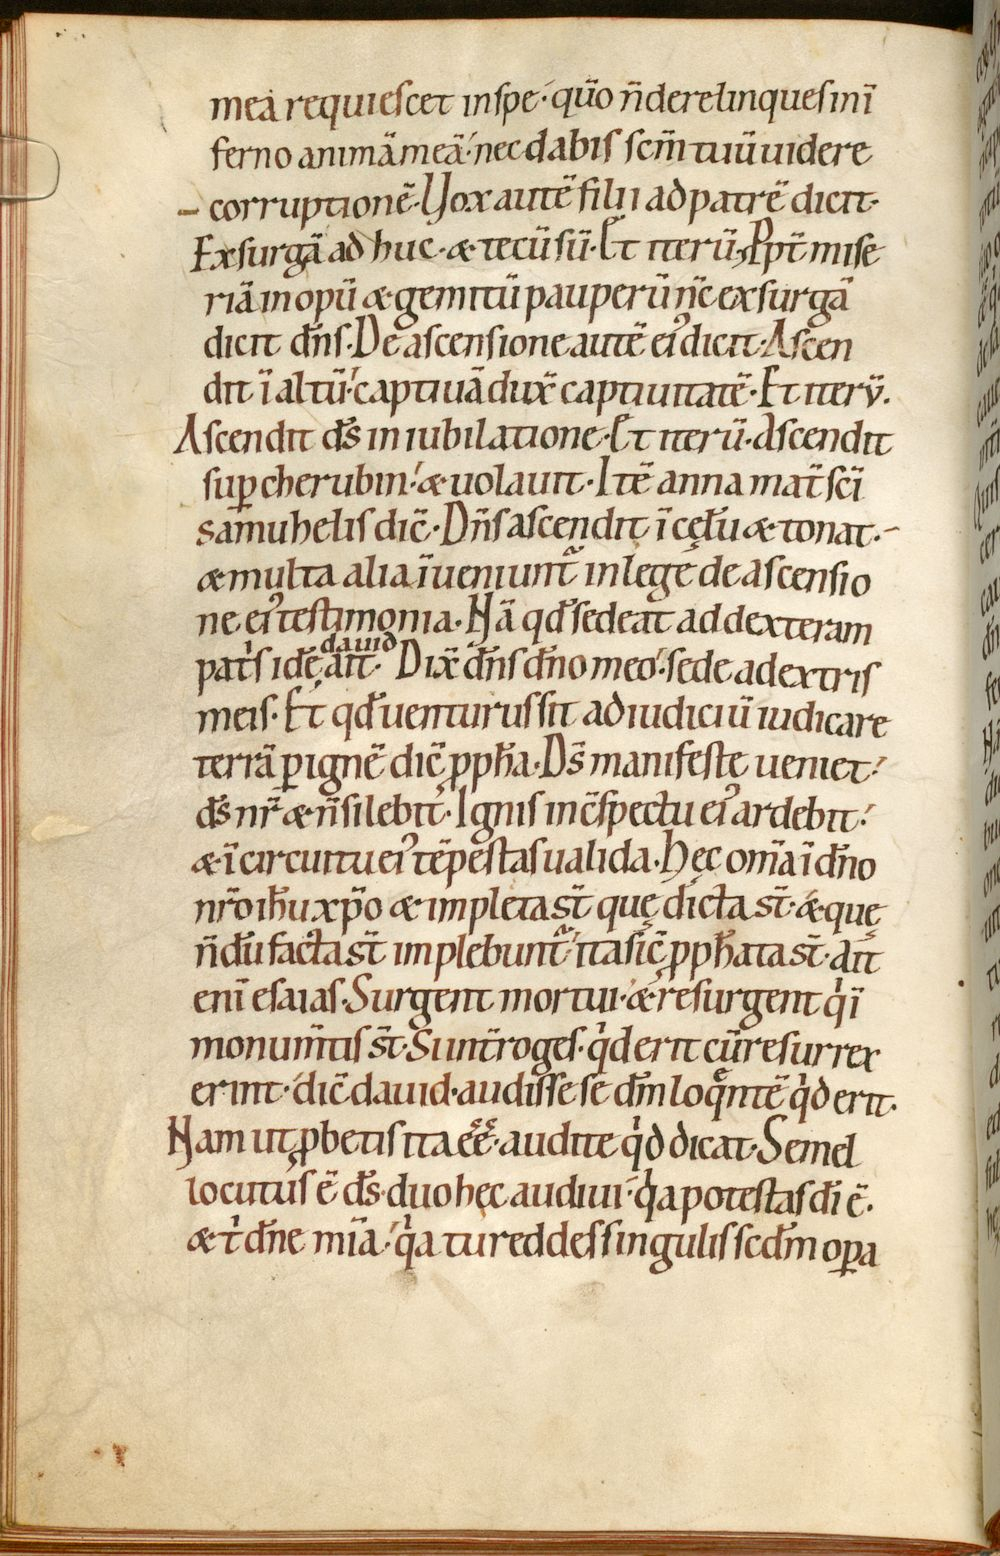 mea requiescet inspe· qūo n̄derelinquesinī
ferno animā meā·́ nec dabis scm̄ tuū uidere
corruptionē· Uox autē filii ad patrē dicit·
Exsurgā ad huc· & tecū sū· Et iterū; Ppt̄ mise
riā inopū & gemitū pauperū n̄c exsurgā
dicit dn̄s· De ascensione autē ei᾿ dicit· Ascen
dit ī altū·́ captiuā dux̄ captiuitatē· Et iterū·
Ascendit ds̄ in iubilatione· Et iterū· Ascendit
suꝑ cherubin·́ & uolauit· Itē anna mat̄ scī
samuhelis dic̄· Dn̄s ascendit ī cęlū & tonat·
& multa alia īueniunt᷑ inlege de ascensio
ne ei᾿ testimonia· Nā qd̄ sedeat ad dexteram
pat͛s idē dauid ait· Dix̄ dn̄s dn̄o meo·́ sede adextris
meis· Et qd̄ uenturus sit ad iudiciū iudicare
terrā ꝑ ignē dic̄ ꝓph̄a· Ds̄ manifeste ueniet·́
ds̄ nr̄ & n̄ silebit· Ignis inc̄spectu ei᾿ ardebit·́
& ī circuitu ei᾿ tēpestas ualida· Hęc om̄a ī dn̄o
nr̄o ih̄u xp̄o & impleta st̄ quę dicta st̄· & quę
n̄dū facta st̄ implebunt᷑·́ ita sic̄ ꝓph̄ata st̄· Ait
enī esaias· Surgent mortui·́ & resurgent qͥ ī
monum̄tis st̄· Sunt̄ roges· qͥd erit cū resurrex
erint·́ dic̄ dauid· audisse se dm̄ loqͣntē qͥd erit·
Nam ut ꝓbetis ita eē̄· audite qͥd dicat· Semel
locutus ē ds̄· duo hęc audiui·́ qͥa potestas dī ē·
& tͥ dn̄e mīa·́ qͥa tu reddes singulis sc̄dm oꝑa